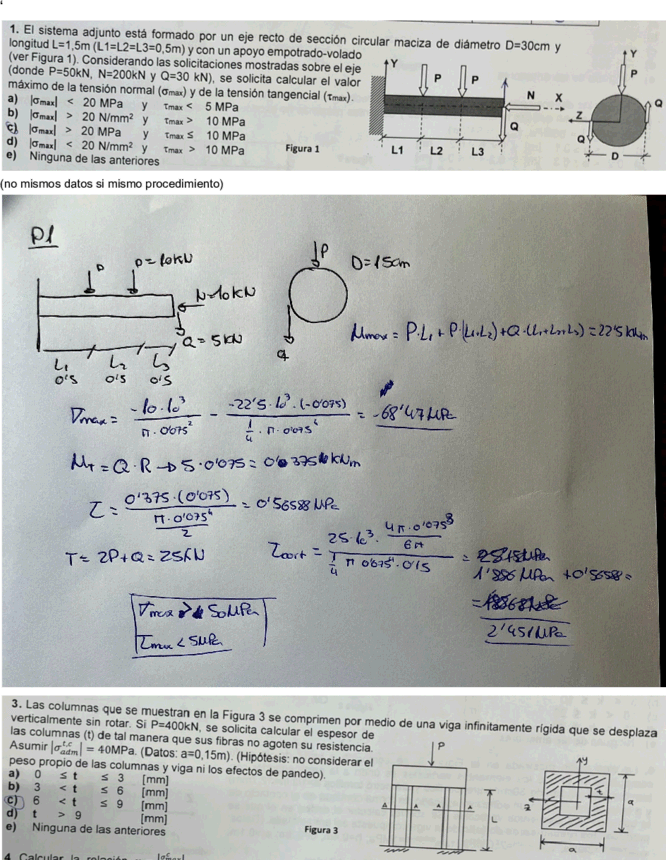 1. El sistema adjunto está formado por un eje recto de sección circular maciza de diámetro D=30cm y
longitud L=1,5m (L1=L2=L3=0,5m) y con un apoyo empotrado-volado
(ver Figura 1). Considerando las solicitaciones mostradas sobre el eje
(donde P=50kN, N=200kN y Q=30 kN), se solicita calcular el valor
máximo de la tensión normal (σmax) y de la tensión tangencial (τmax).
a) |σmax| < 20 MPa y τmax < 5 MPa
b) |σmax| > 20 N/mm² y τmax > 10 MPa
c) |σmax| > 20 MPa y τmax ≤ 10 MPa
d) |σmax| < 20 N/mm² y τmax > 10 MPa
e) Ninguna de las anteriores
Figura 1
Y
P P
N X
Q
L1 L2 L3
Y
P
Q
Z
Q
D
(no mismos datos si mismo procedimiento)
P1
P P=10kN
N=10kN
Q=5kN
L1 L2 L3
0'5 0'5 0'5
P
D=15cm
Q
Mmax = P·L1 + P·(L1+L2)+Q·(L1+L2+L3)=22'5 kNm
σmax = -10·10³ / π·0'075² - -22'5·10³·(-0'075) / 1/4·π·0'075⁴ = -68'47 MPa
MT = Q·R → 5·0'075 = 0'375 kNm
τ = 0'375·(0'075) / π·0'075⁴/2 = 0'56588 MPa
T = 2P+Q = 25kN
τcort = 25·10³· 4π·0'075³/6π / 1/4 π 0'075⁴·0'15 = 1'886 MPa + 0'5658 =
2'451 MPa
σmax > 50MPa
τmax < 5MPa
3. Las columnas que se muestran en la Figura 3 se comprimen por medio de una viga infinitamente rígida que se desplaza
verticalmente sin rotar. Si P=400kN, se solicita calcular el espesor de
las columnas (t) de tal manera que sus fibras no agoten su resistencia.
Asumir |σadm t,c| = 40MPa. (Datos: a=0,15m). (Hipótesis: no considerar el
peso propio de las columnas y viga ni los efectos de pandeo).
a) 0 ≤ t ≤ 3 [mm]
b) 3 < t ≤ 6 [mm]
c) 6 < t ≤ 9 [mm]
d) t > 9 [mm]
e) Ninguna de las anteriores
Figura 3
P
A A A A
L
y
z
t
a
a
4. Calcular la relación